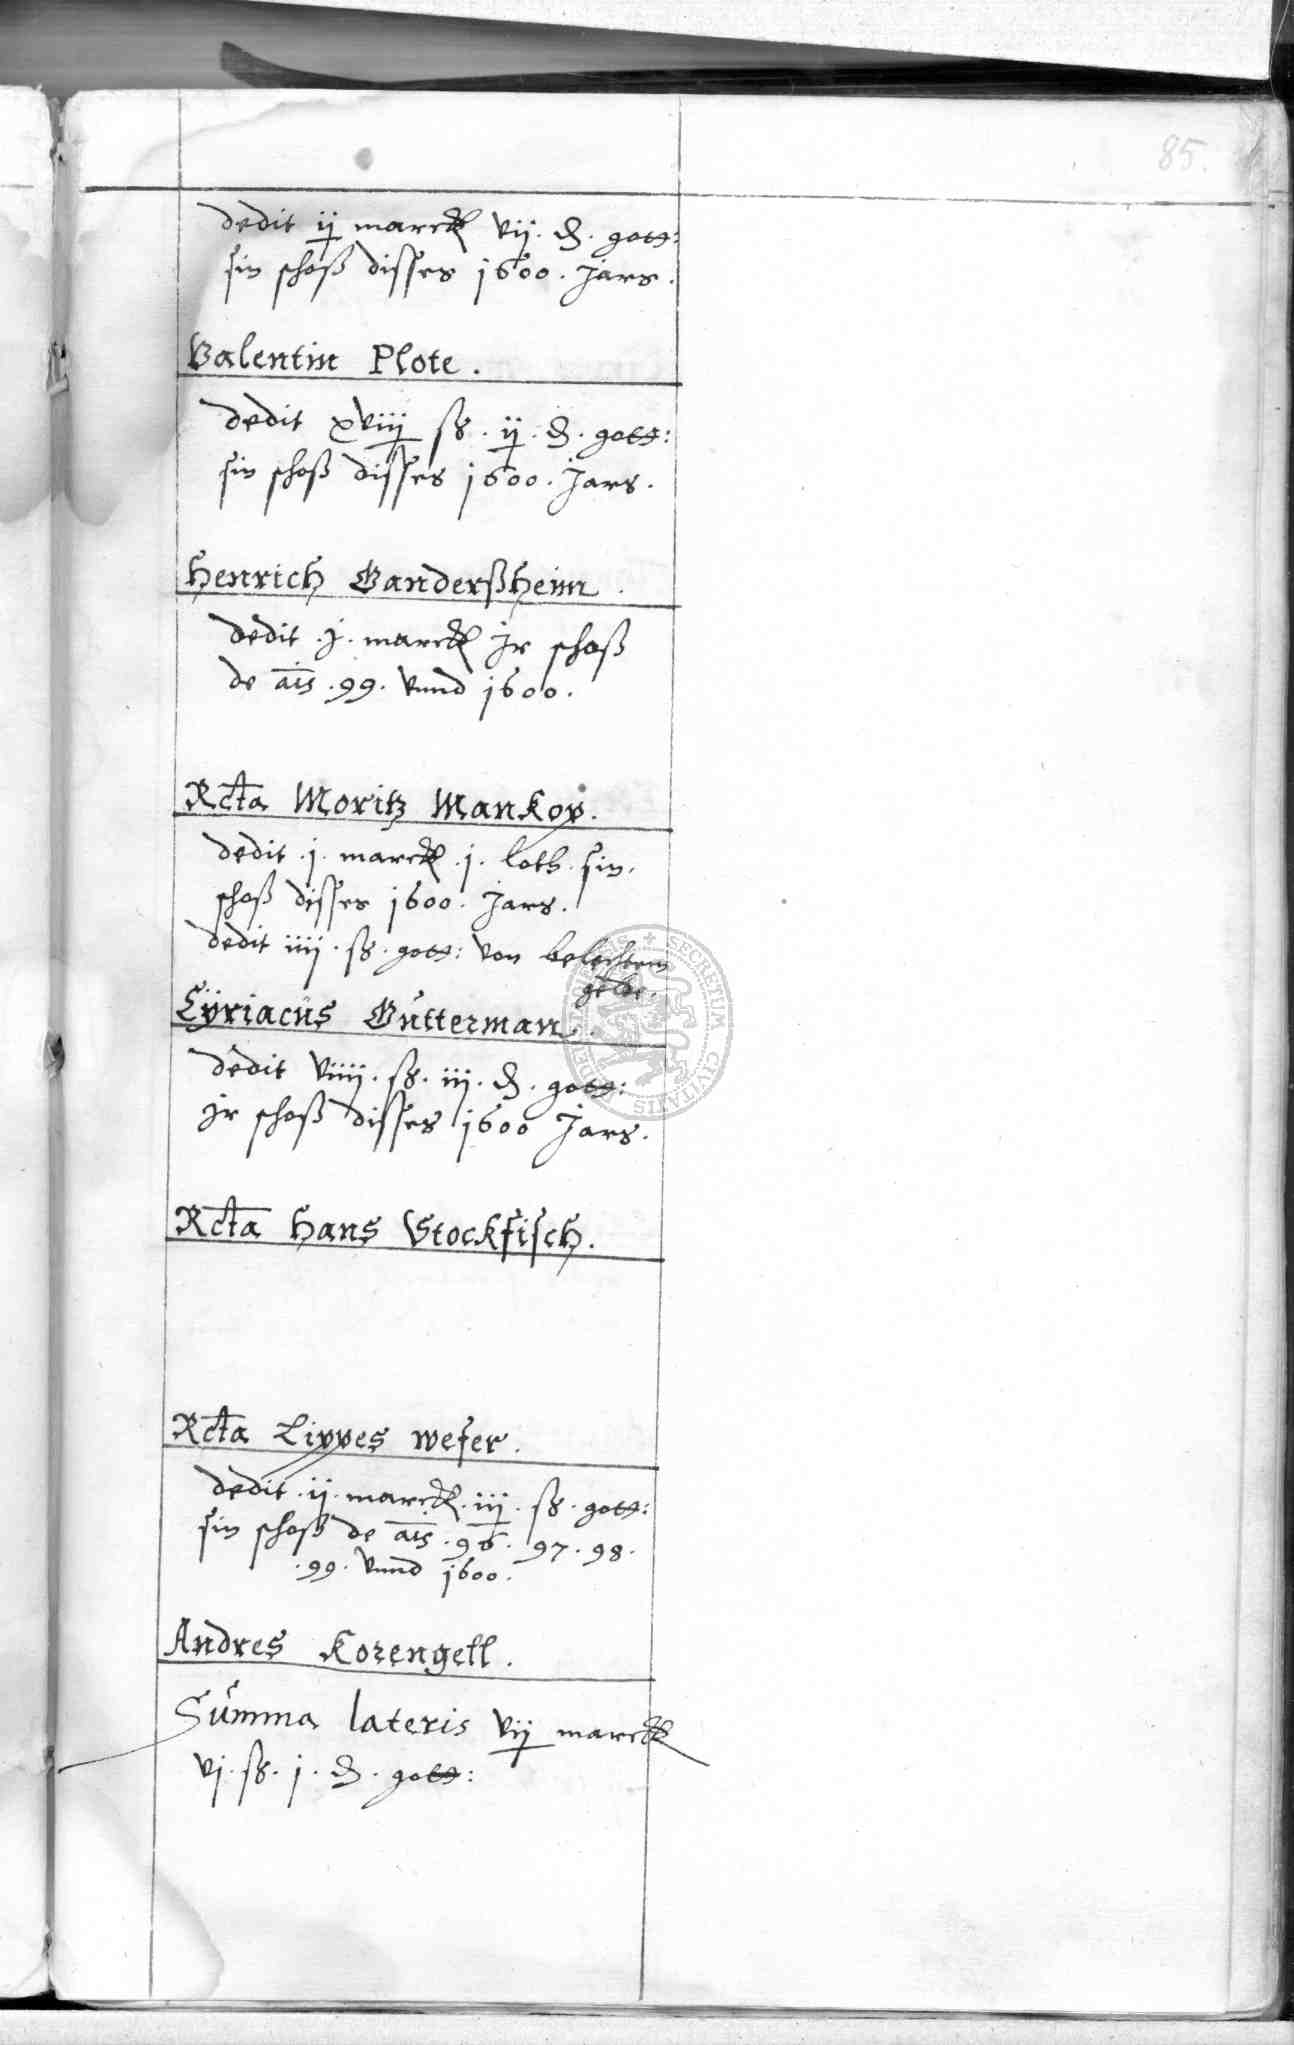 85.
dedit ij marck vij. ₰. gott:
sin schoß disses 1600. Jars.
Valentin Plote.
dedit xviij ß. ij. ₰. gott:
sin schoß disses 1600. Jars.
Henrich Ganderßheim.
dedit .j. marck Jr schoß
de ais .99. vnnd 1600.
Rcta Moritz Mankop.
dedit .j. marck .j. loth. sin.
schoß disses 1600. Jars.
dedit iiij. ß. gott: von belechtem
gelde.
Cÿriacus Gutterman.
dedit viiij. ß. iij. ₰. gott:
Jr schoß disses 1600 Jars.
Rcta Hans Stockfisch.
Rcta Lippes weser.
dedit .ij. marck. iij. ß. gott:
sin schoß de ais .96. 97. 98.
.99. vnnd 1600.
Andres Korengell.
Summa lateris vij marck
vj. ß. j. ₰. gott:
SECRETUM CIVITATIS